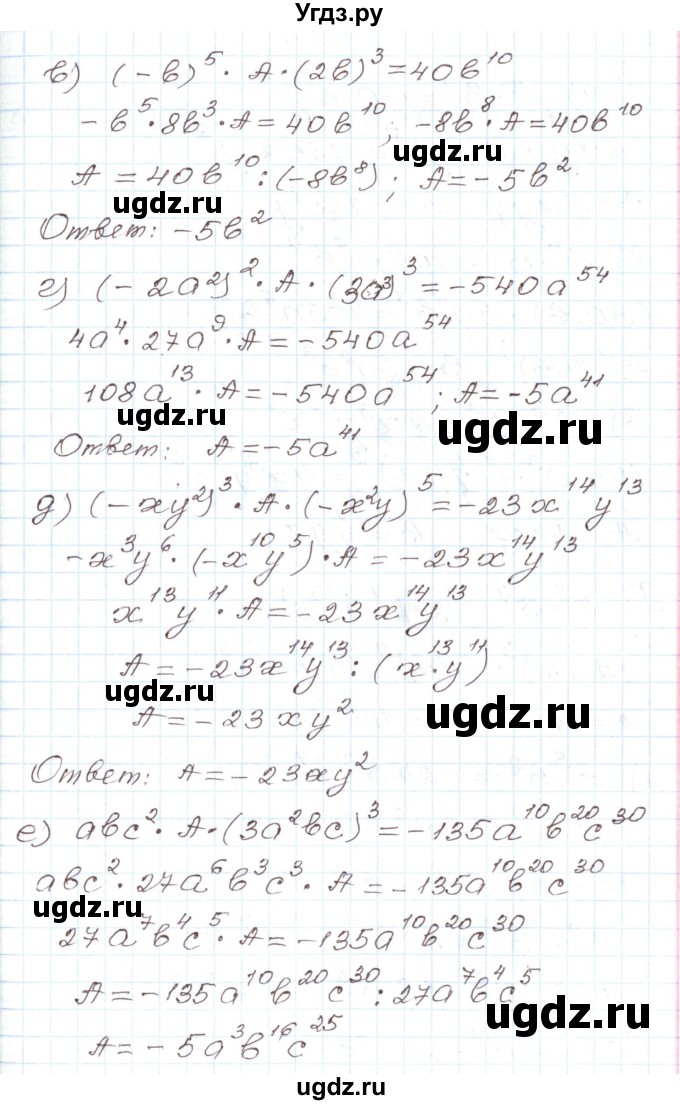 Угдз.ру
в) (-в)⁵ · A · (2в)³ = 40в¹⁰
-в⁵ · 8в³ · A = 40в¹⁰; -8в⁸ · A = 40в¹⁰
ugdz.ru
A = 40в¹⁰ : (-8в⁸); A = -5в²
ugdz.ru
Ответ: -5в²
г) (-2a²)² · A · (3a³)³ = -540a⁵⁴
4a⁴ · 27a⁹ · A = -540a⁵⁴
108a¹³ · A = -540a⁵⁴; A = -5a⁴¹
ugdz.ru
ugdz.ru
Ответ: A = -5a⁴¹
д) (-xy²)³ · A · (-x²y)⁵ = -23x¹⁴y¹³
-x³y⁶ · (-x¹⁰y⁵) · A = -23x¹⁴y¹³
x¹³y¹¹ · A = -23x¹⁴y¹³
A = -23x¹⁴y¹³ : (x¹³ · y¹¹)
ugdz.ru
A = -23xy²
ugdz.ru
Ответ: A = -23xy²
е) aвc² · A · (3a²вc)³ = -135a¹⁰в²⁰c³⁰
aвc² · 27a⁶в³c³ · A = -135a¹⁰в²⁰c³⁰
ugdz.ru
27a⁷в⁴c⁵ · A = -135a¹⁰в²⁰c³⁰
A = -135a¹⁰в²⁰c³⁰ : 27a⁷в⁴c⁵
ugdz.ru
A = -5a³в¹⁶c²⁵
ugdz.ru